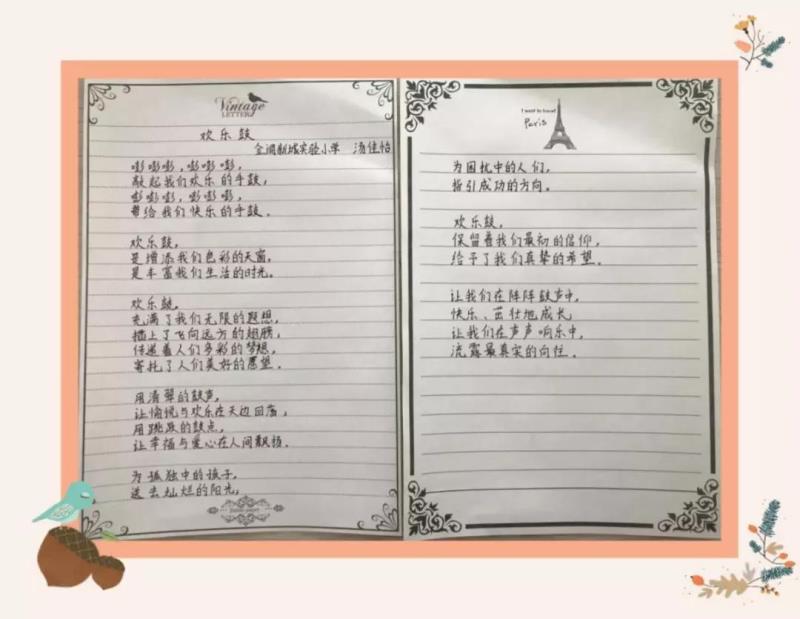 Vintage
LETTER
欢乐鼓
金湖新城实验小学 汤佳怡
嘭嘭嘭，嘭嘭嘭，
敲起我们欢乐的手鼓，
嘭嘭嘭，嘭嘭嘭，
带给我们快乐的手鼓。
欢乐鼓，
是增添我们色彩的天窗，
是丰富我们生活的时光。
欢乐鼓，
充满了我们无限的遐想，
插上了飞向远方的翅膀，
传递着人们多彩的梦想，
寄托了人们美好的愿望。
用清翠的鼓声，
让愉悦与欢乐在天边回荡，
用跳跃的鼓点，
让幸福与爱心在人间飘扬。
为孤独中的孩子，
送去灿烂的阳光；
I want to travel
Paris
为困扰中的人们，
指引成功的方向。
欢乐鼓，
保留着我们最初的信仰，
给予了我们真挚的希望。
让我们在阵阵鼓声中，
快乐、茁壮地成长，
让我们在声声响乐中，
流露最真实的向往。